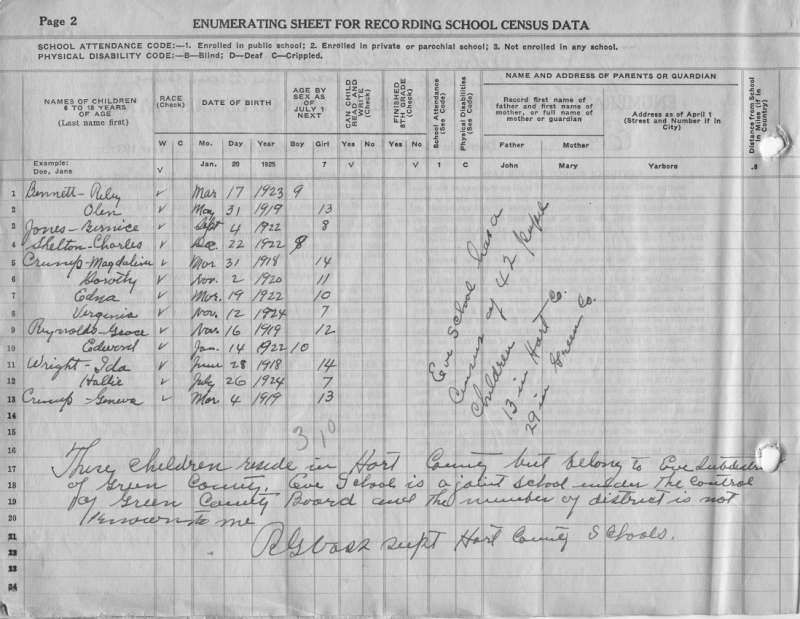 Page 2
ENUMERATING SHEET FOR RECORDING SCHOOL CENSUS DATA
SCHOOL ATTENDANCE CODE:—1. Enrolled in public school; 2. Enrolled in private or parochial school; 3. Not enrolled in any school.
PHYSICAL DISABILITY CODE:—B—Blind; D—Deaf C—Crippled.
NAMES OF CHILDREN 6 TO 18 YEARS OF AGE (Last name first)
RACE (Check)
W C
DATE OF BIRTH
Mo. Day Year
AGE BY SEX AS OF JULY 1 NEXT
Boy Girl
CAN CHILD READ AND WRITE (Check)
Yes No
FINISHED 8TH GRADE (Check)
Yes No
School Attendance (See Code)
Physical Disabilities (See Code)
NAME AND ADDRESS OF PARENTS OR GUARDIAN
Record first name of father and first name of mother, or full name of mother or guardian
Father Mother
Address as of April 1 (Street and Number if in City)
Distance from School in Miles (if in Country)
Example: Doe, Jane V Jan. 20 1925 7 V V 1 C John Mary Yarboro .8
1 Bennett - Riley ✓ Mar 17 1923 9
2 Olen ✓ May 31 1919 13
3 Jones - Bernice ✓ Sept 4 1922 8
4 Shelton - Charles ✓ Dec 22 1922 8
5 Crump - Magdaline ✓ Mar 31 1918 14
6 Dorothy ✓ Nov. 2 1920 11
7 Edna ✓ Mar. 19 1922 10
8 Virginia ✓ Nov. 12 1924 7
9 Reynolds - Grace ✓ Nov. 16 1919 12
10 Edword ✓ Jan. 14 1922 10
11 Wright - Ida ✓ June 28 1918 14
12 Hallie ✓ July 26 1924 7
13 Crump - Geneva ✓ Mar 4 1919 13
14
15
16
17
18
19
20
21
22
23
24
Eve School has a
Census of 42 pupil
Children
13 in Hart Co.
29 in Green Co.
3 10
These children reside in Hart County but belong to Eve Subdistri
of Green County. Eve School is a joint school under the control
of Green County Board and the number of district is not
known to me
supt Hart County Schools.